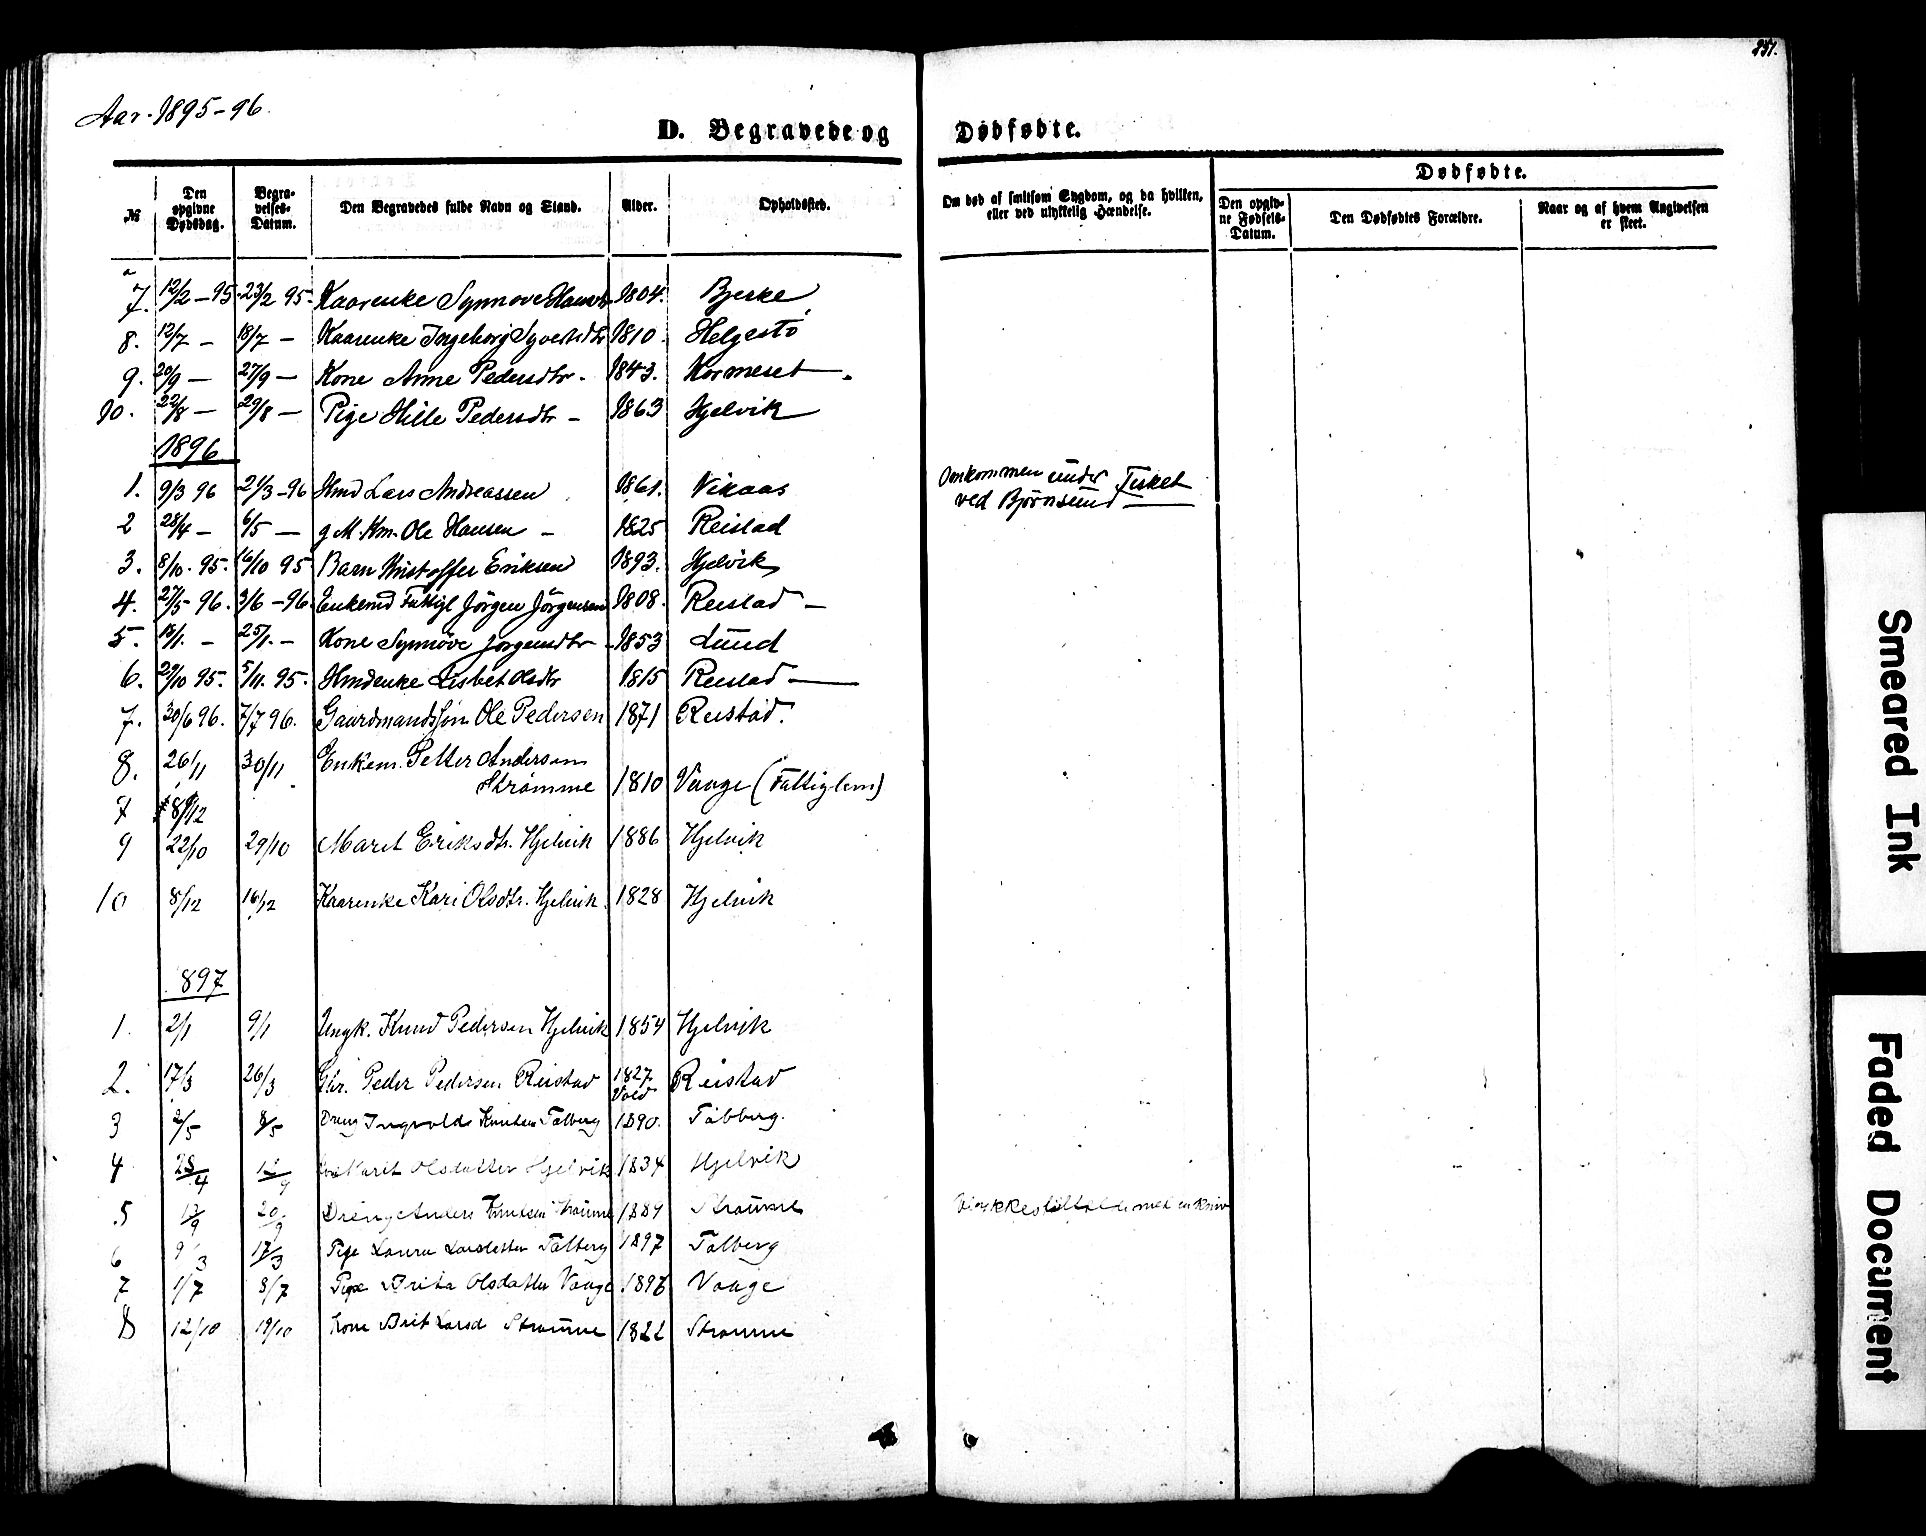 251.
Aar 1895-96.
D. Begravede og Dødfødte.
№ Den opgivne Dødsdag. Begravelses-Datum. Den Begravedes fulde Navn og Stand. Alder. Opholdssted. Om død af smitsom Sygdom, og da hvilken, eller ved ulykkelig Hændelse. Dødfødte. Den opgivne Fødsels-Datum. Den Dødfødtes Forældre. Naar og af hvem Angivelsen er skeet.
7. 12/2 - 95 23/2 95. Kaarenke Synnøve Hansdtr 1804. Bjerke
8. 12/7 - 18/7 - Kaarenke Ingeborg Syvertsdtr 1810. Helgestø
9. 20/9 - 27/9 - Kone Anne Pedersdtr. 1843. Kormeset
10. 22/8 - 29/8 - Pige Hille Pedersdtr - 1863 Hjelvik
1896
1. 9/3 96 21/3 -96 Hmd Lars Andreassen 1861. Vikaas Omkommen under Fisket
ved Bjørnsund
2 28/4 - 6/5 - g M. Km. Ole Hansen - 1825 Reistad
3. 8/10. 95. 16/10 95 Barn Kristoffer Eriksen 1893. Hjelvik
4. 27/5 96. 3/6 -96. Enkemd Fattigl Jörgen Jörgensen 1808. Reistad -
5. 18/1. - 25/1. - Kone Synnøve Jørgensdtr - 1853 Lund
6. 29/10 95. 5/11. 95. Hmdenke Lisbet Olsdtr 1815 Reistad
7. 30/6 96. 7/7 96. Gaardmandssøn Ole Pedersen 1871 Reistad.
8. 26/11 30/11 Enkem. Petter Andersen
Strømme 1810 Vaage (Fattiglem)
7 8/12
9 22/10 29/10 Marit Eriksdtr. Hjelvik 1886 Hjelvik
10 8/12 16/12 Kaarenke Kari Olsdtr. Hjelvik. 1828 Hjelvik
1897
1. 2/1 9/1 Ungk. Knud Pedersen Hjelvik 1854 Hjelvik
2. 17/3 26/3 Gbr. Peder Pedersen Reistad 1827. Reistad
Vold
3 2/5 8/5 Dreng Ingvald Knutsen Talberg 1890. Talberg.
4 28/4 Marit Olsdatter Hjelvik 1834 Hjelvik
5 13/9 20/9 Dreng Anders Knutsen Straume 1884 Straume med en kniv
6 9/3 17/3 Pige Laura Larsdatter Talberg 1897 Talberg
7 1/7 8/7 Pige Brita Olsdatter Vaage 1896 Vaage
8 12/10 19/10 Kone Brit Larsd Straume 1822 Straume
Smeared Ink
Faded Document